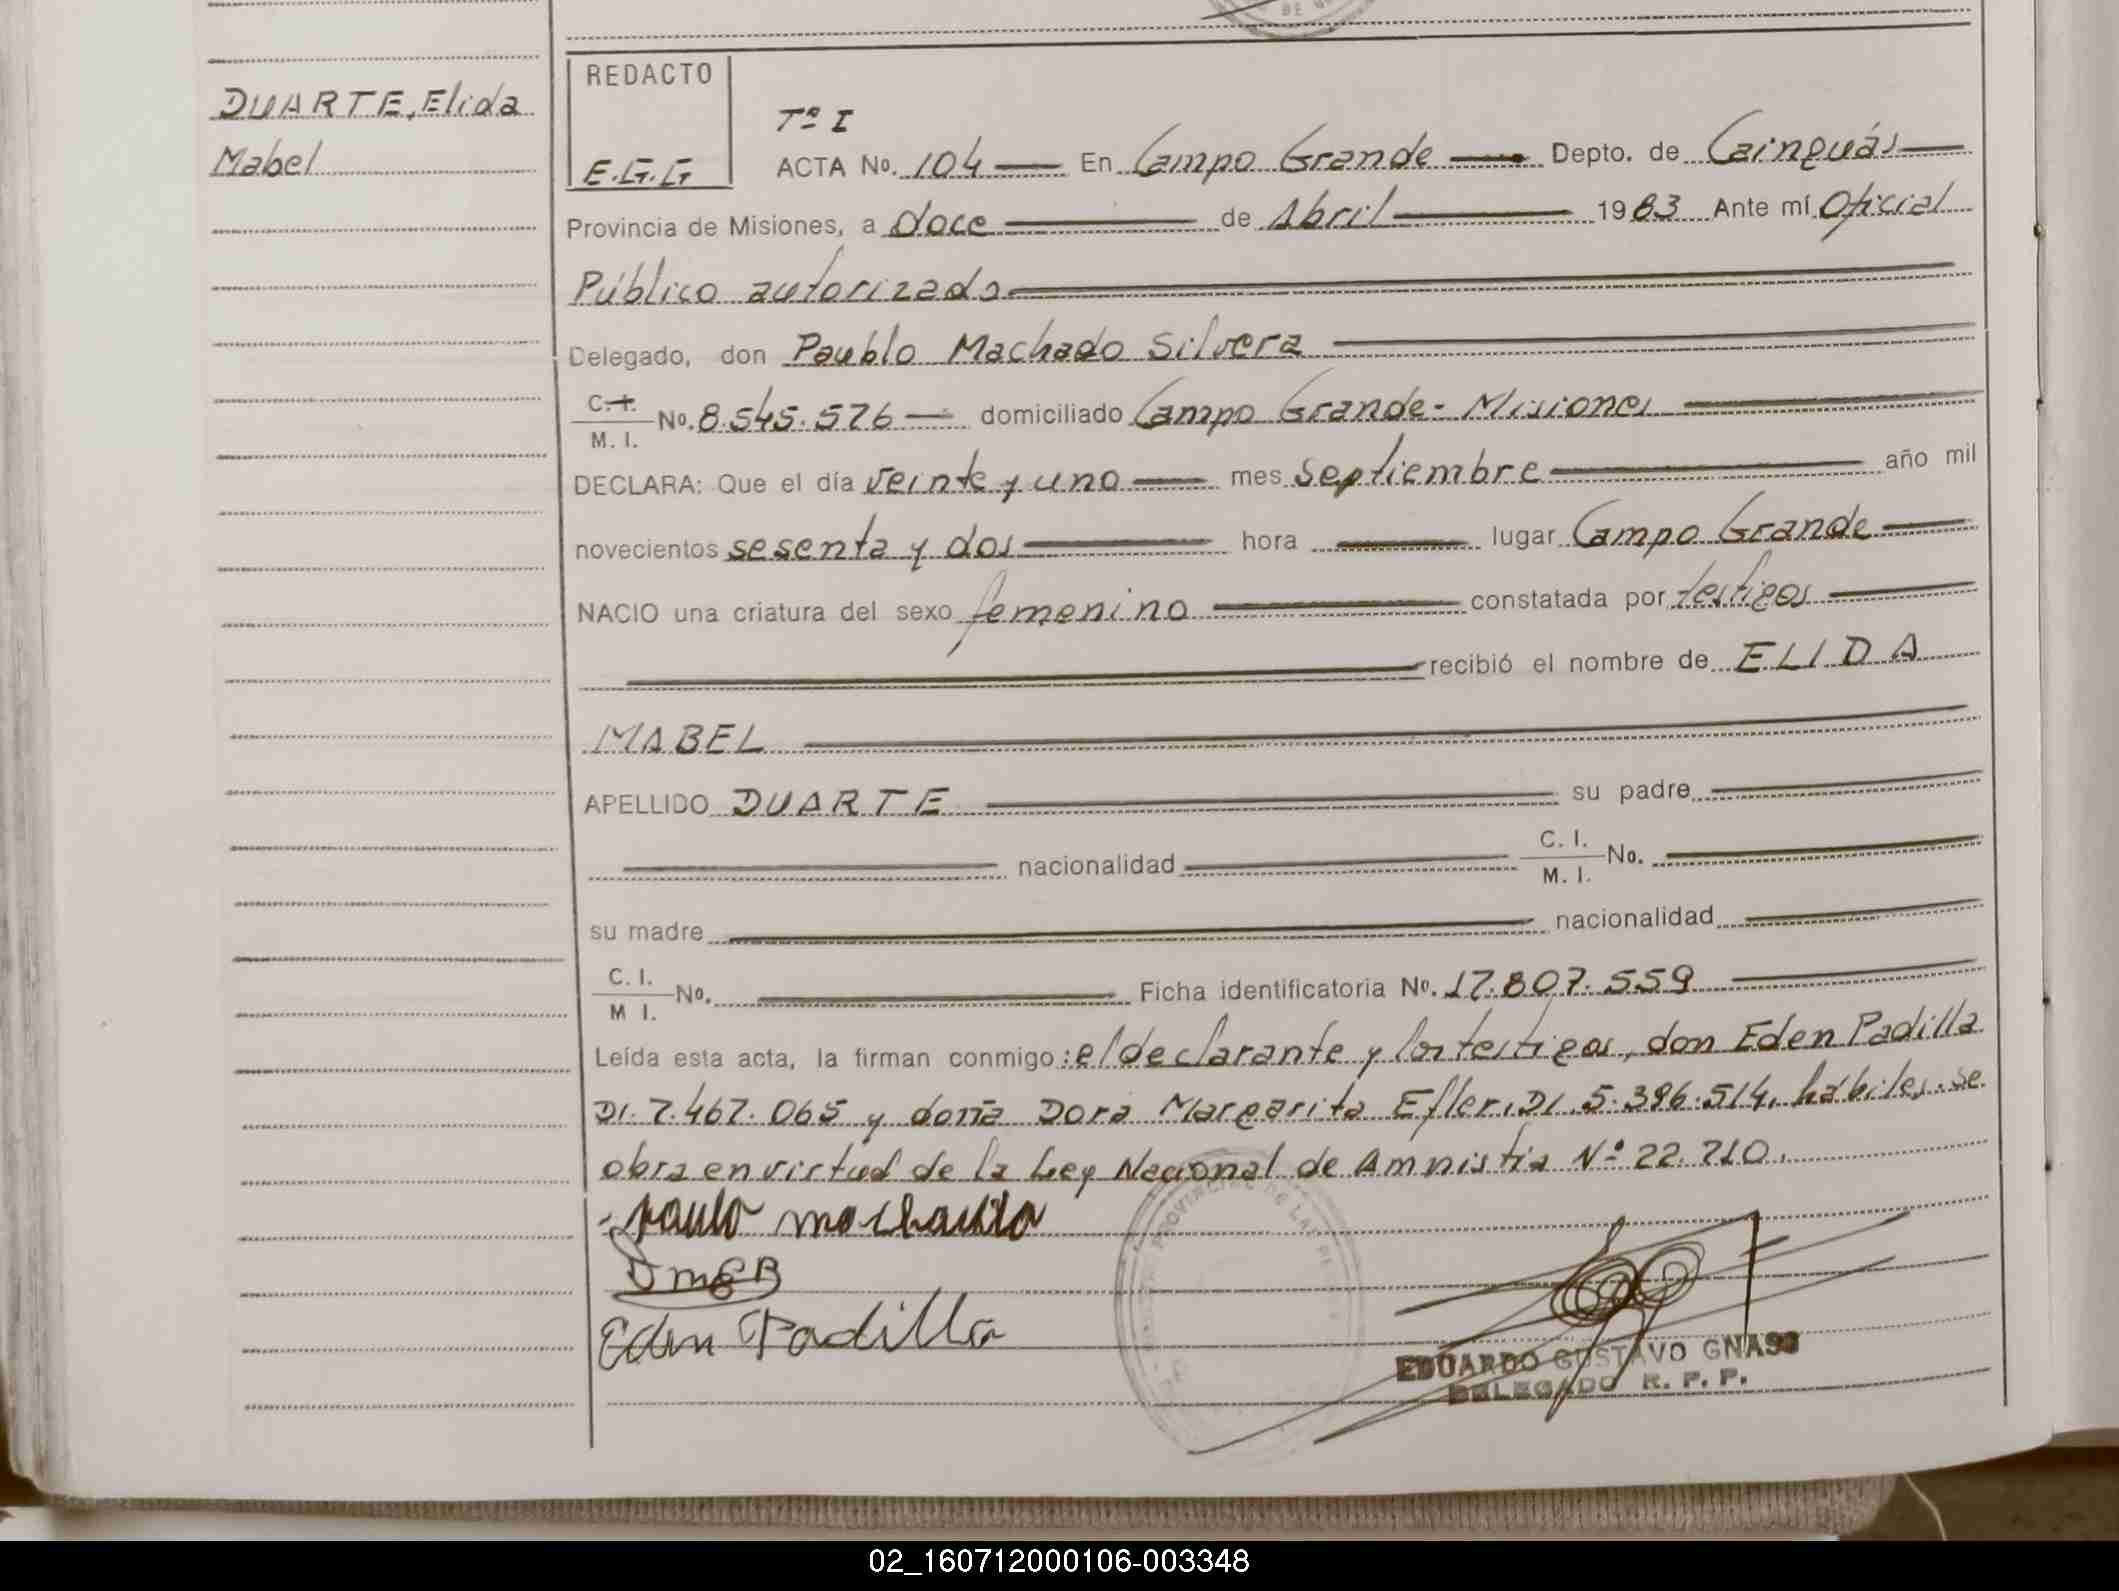 DUARTE, Elida
Mabel
REDACTO
E.G.G
Tº I
ACTA No. 104 En Campo Grande Depto. de Cainguás
Provincia de Misiones, a doce de Abril 1983 Ante mí Oficial
Público autorizado
Delegado, don Paublo Machado Silvera
C.I. M. I. No. 8.545.576 domiciliado Campo Grande - Misiones
DECLARA: Que el día veinte y uno mes septiembre año mil
novecientos sesenta y dos hora lugar Campo Grande
NACIO una criatura del sexo femenino constatada por testigos
recibió el nombre de ELIDA
MABEL
APELLIDO DUARTE su padre
nacionalidad C. I. M. I. No.
su madre nacionalidad
C. I. M I. No. Ficha identificatoria No. 17.807.559
Leída esta acta, la firman conmigo: el declarante y los testigos, don Eden Padilla
DI. 7.467.065 y doña Dora Margarita Efler, DI. 5.396.514, hábiles. se
obra en virtud de la Ley Nacional de Amnistía Nº 22.710.
Eden Padilla
EDUARDO GUSTAVO GNASS
DELEGADO R. P. P.
02_160712000106-003348